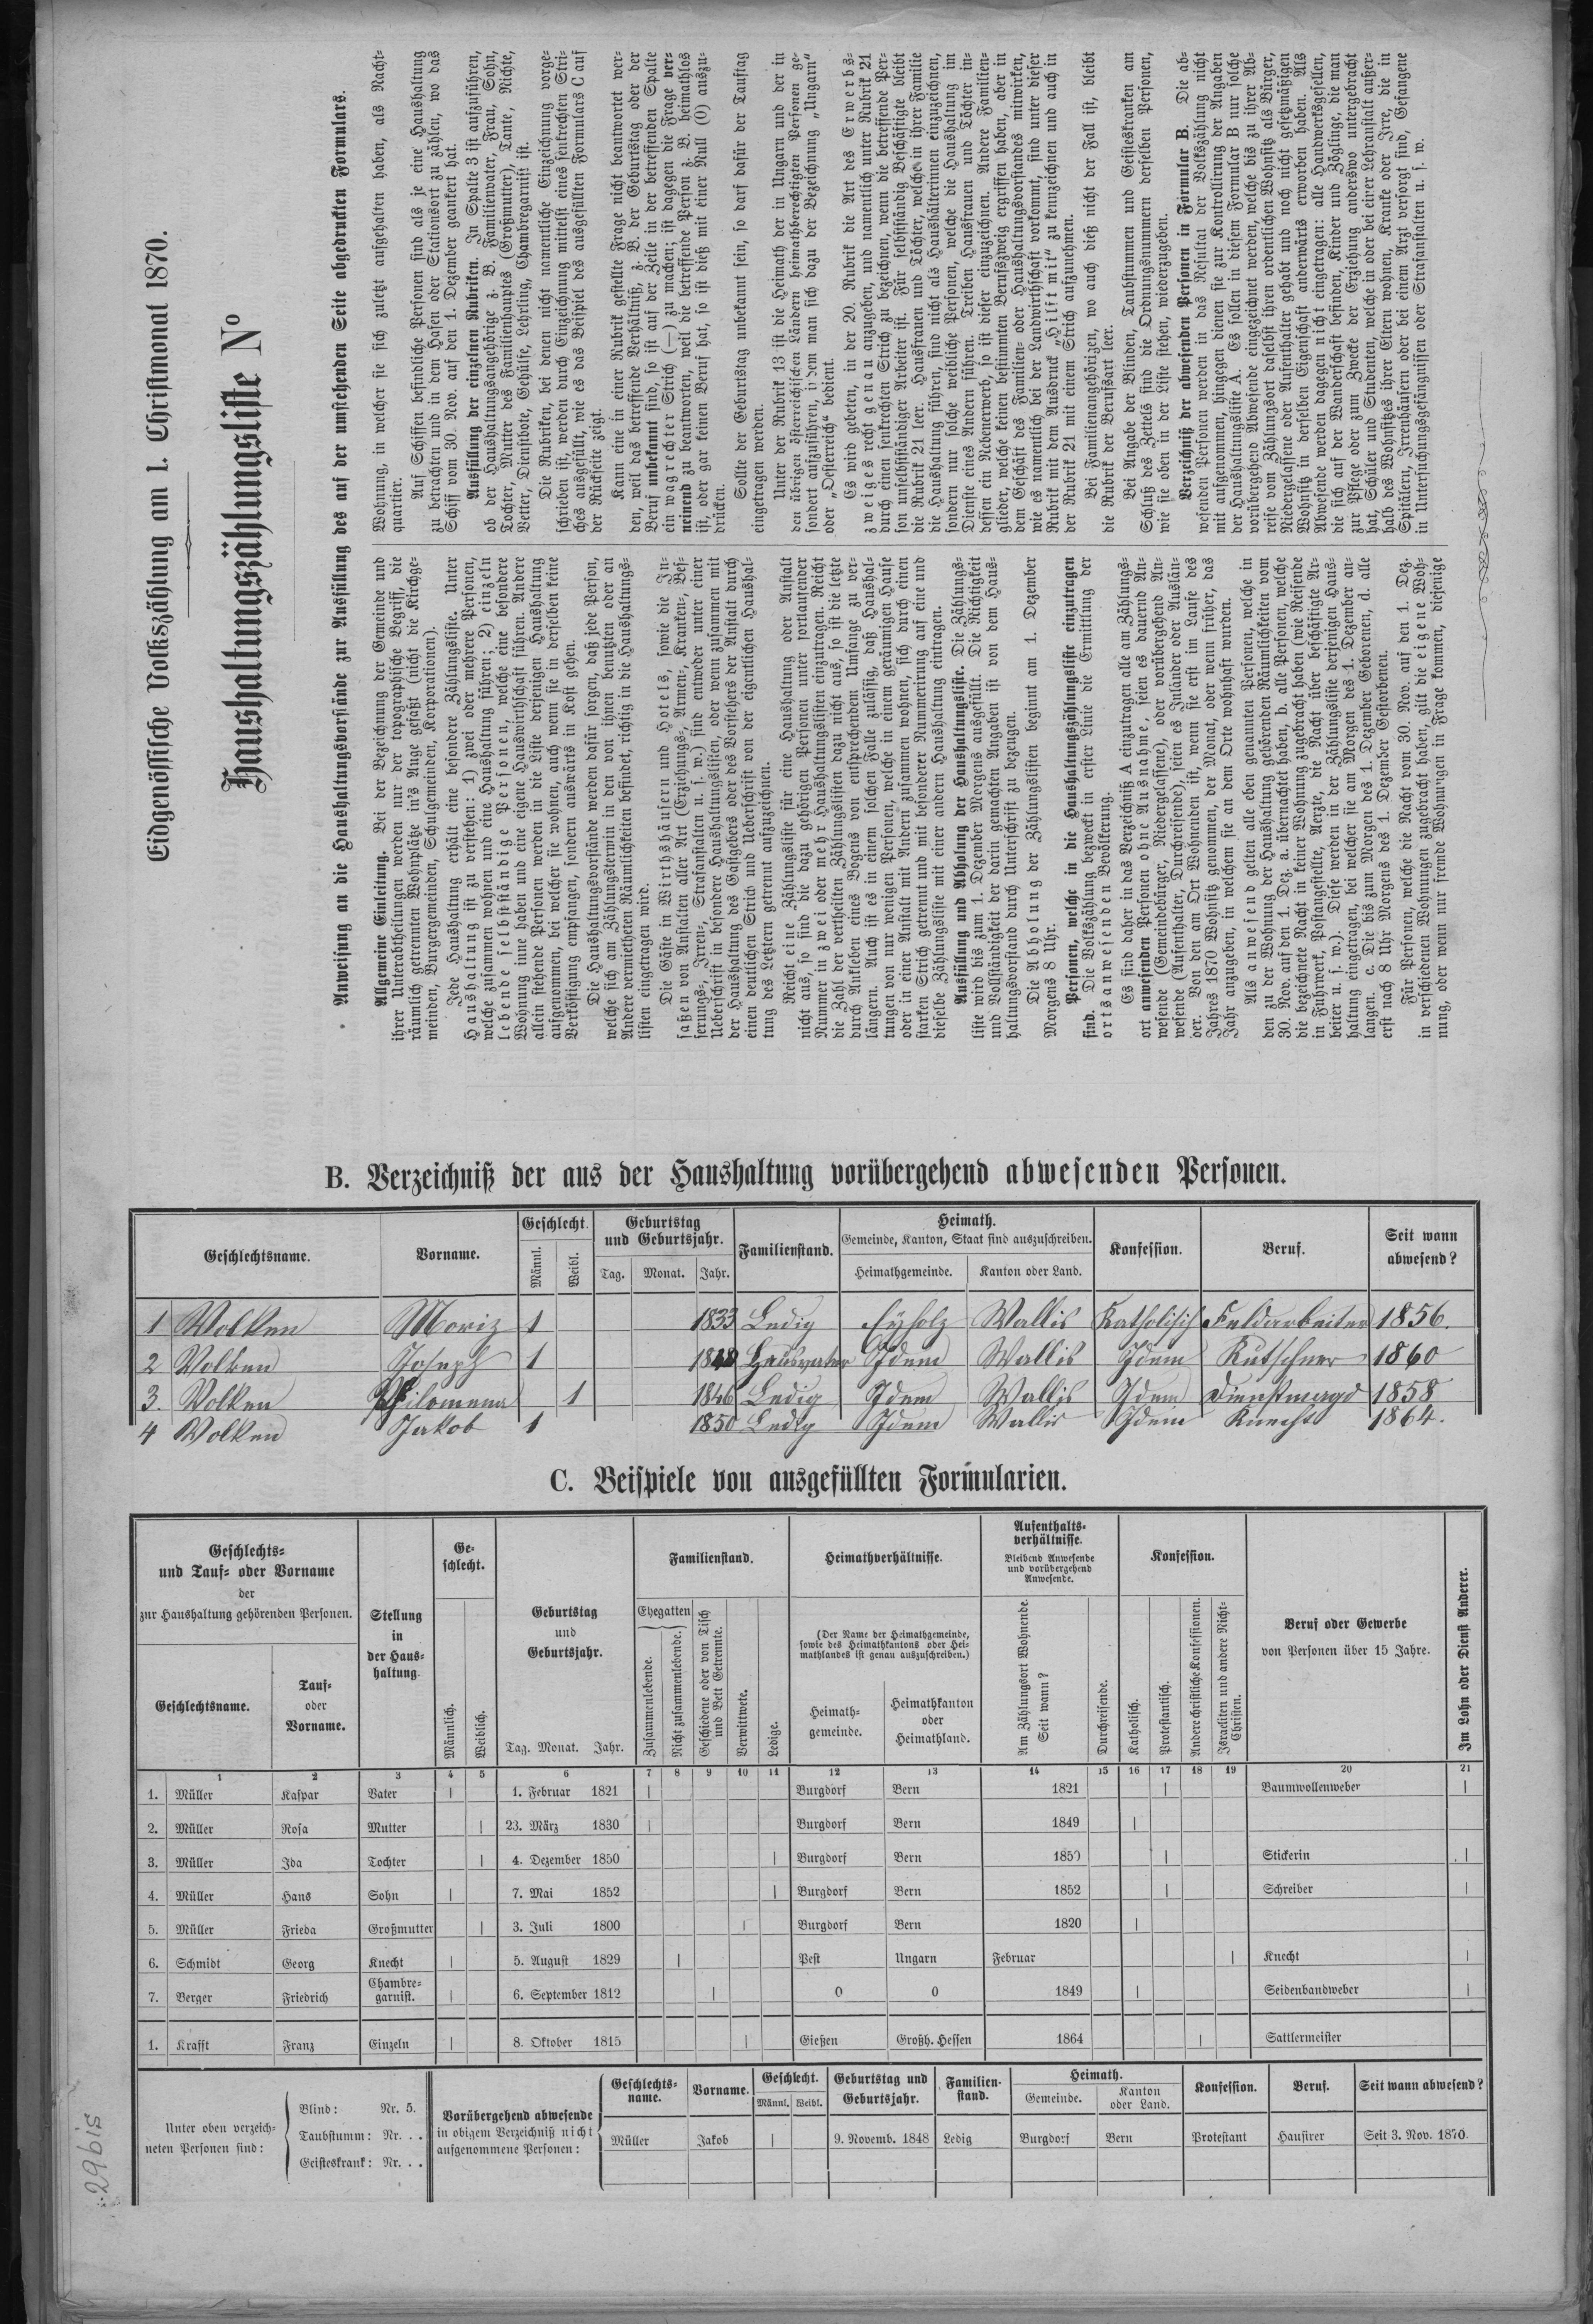 Eidgenössische Volkszählung am 1. Christmonat 1870.
Haushaltungszählungsliste No
Anweisung an die Haushaltungsvorstände zur Ausfüllung des auf der umstehenden Seite abgedruckten Formulars.
Allgemeine Einleitung. Bei der Bezeichnung der Gemeinde und
ihrer Unterabtheilungen werden nur der topographische Begriff, die
räumlich getrennten Wohnplätze in's Auge gefaßt (nicht die Kirchge-
meinden, Burgergemeinden, Schulgemeinden, Korporationen).
Jede Haushaltung erhält eine besondere Zählungsliste. Unter
Haushaltung ist zu verstehen: 1) zwei oder mehrere Personen,
welche zusammen wohnen und eine Haushaltung führen; 2) einzeln
lebende selbstständige Personen, welche eine besondere
Wohnung inne haben und eine eigene Hauswirthschaft führen. Andere
allein stehende Personen werden in die Liste derjenigen Haushaltung
aufgenommen, bei welcher sie wohnen, auch wenn sie in derselben keine
Verköstigung empfangen, sondern auswärts in Kost gehen.
Die Haushaltungsvorstände werden dafür sorgen, daß jede Person,
welche sich am Zählungstermin in den von ihnen benutzten oder an
Andere vermietheten Räumlichkeiten befindet, richtig in die Haushaltungs-
listen eingetragen wird.
Die Gäste in Wirthshäusern und Hotels, sowie die In-
saßen von Anstalten aller Art (Erziehungs-, Armen-, Kranken-, Bes-
serungs-, Irren-, Strafanstalten u. s. w.) sind entweder unter einer
Ueberschrift in besondere Haushaltungslisten, oder wenn zusammen mit
der Haushaltung des Gastgebers oder des Vorstehers der Anstalt durch
einen deutlichen Strich und Ueberschrift von der eigentlichen Haushal-
tung des Letztern getrennt aufzuzeichnen.
Reicht eine Zählungsliste für eine Haushaltung oder Anstalt
nicht aus, so sind die dazu gehörigen Personen unter fortlaufender
Nummer in zwei oder mehr Haushaltungslisten einzutragen. Reicht
die Zahl der vertheilten Zählungslisten dazu nicht aus, so ist die letzte
durch Ankleben eines Bogens von entsprechendem Umfange zu ver-
längern. Auch ist es in einem solchen Falle zuläßig, daß Haushal-
tungen von nur wenigen Personen, welche in einem geräumigen Hause
oder in einer Anstalt mit Andern zusammen wohnen, sich durch einen
starken Strich getrennt und mit besonderer Nummerirung auf eine und
dieselbe Zählungsliste mit einer andern Haushaltung eintragen.
Ausfüllung und Abholung der Haushaltungsliste. Die Zählungs-
liste wird bis zum 1. Dezember Morgens ausgefüllt. Die Richtigkeit
und Vollständigkeit der darin gemachten Angaben ist von dem Haus-
haltungsvorstand durch Unterschrift zu bezeugen.
Die Abholung der Zählungslisten beginnt am 1. Dezember
Morgens 8 Uhr.
Personen, welche in die Haushaltungszählungsliste einzutragen
sind. Die Volkszählung bezweckt in erster Linie die Ermittlung der
ortsanwesenden Bevölkerung.
Es sind daher in das Verzeichniß A einzutragen alle am Zählungs-
ort anwesenden Personen ohne Ausnahme, seien es dauernd An-
wesende (Gemeindebürger, Niedergelassene), oder vorübergehend An-
wesende (Aufenthalter, Durchreisende), seien es Inländer oder Auslän-
der. Von den am Ort Wohnenden ist, wenn sie erst im Laufe des
Jahres 1870 Wohnsitz genommen, der Monat, oder wenn früher, das
Jahr anzugeben, in welchem sie an dem Orte wohnhaft wurden.
Als anwesend gelten alle eben genannten Personen, welche in
den zu der Wohnung der Haushaltung gehörenden Räumlichkeiten vom
30. Nov. auf den 1. Dez. a. übernachtet haben, b. alle Personen, welche
die bezeichnete Nacht in keiner Wohnung zugebracht haben (wie Reisende
in Fuhrwerk, Postangestellte, Aerzte, die Nacht über beschäftigte Ar-
beiter u. s. w.). Diese werden in der Zählungsliste derjenigen Haus-
haltung eingetragen, bei welcher sie am Morgen des 1. Dezember an-
langen. c. Die bis zum Morgen des 1. Dezember Gebornen, d. alle
erst nach 8 Uhr Morgens des 1. Dezember Gestorbenen.
Für Personen, welche die Nacht vom 30. Nov. auf den 1. Dez.
in verschiedenen Wohnungen zugebracht haben, gilt die eigene Woh-
nung, oder wenn nur fremde Wohnungen in Frage kommen, diejenige
Wohnung, in welcher sie sich zuletzt aufgehalten haben, als Nacht-
quartier.
Auf Schiffen befindliche Personen sind als je eine Haushaltung
zu betrachten und in dem Hafen oder Stationsort zu zählen, wo das
Schiff vom 30. Nov. auf den 1. Dezember geankert hat.
Ausfüllung der einzelnen Rubriken. In Spalte 3 ist aufzuführen,
ob der Haushaltungsangehörige z. B. Familienvater, Frau, Sohn,
Tochter, Mutter des Familienhauptes (Großmutter), Tante, Nichte,
Vetter, Dienstbote, Gehülfe, Lehrling, Chambregarnist ist.
Die Rubriken, bei denen nicht namentliche Einzeichnung vorge-
schrieben ist, werden durch Einzeichnung mittelst eines senkrechten Stri-
ches ausgefüllt, wie es das Beispiel des ausgefüllten Formulars C auf
der Rückseite zeigt.
Kann eine in einer Rubrik gestellte Frage nicht beantwortet wer-
den, weil das betreffende Verhältniß, z. B. der Geburtstag oder der
Beruf unbekannt sind, so ist auf der Zeile in der betreffenden Spalte
ein wagrechter Strich (—) zu machen; ist dagegen die Frage ver-
neinend zu beantworten, weil die betreffende Person z. B. heimathlos
ist, oder gar keinen Beruf hat, so ist dieß mit einer Null (0) auszu-
drücken.
Sollte der Geburtstag unbekannt sein, so darf dafür der Tauftag
eingetragen werden.
Unter der Rubrik 13 ist die Heimath der in Ungarn und der in
den übrigen österreichischen Ländern heimathberechtigten Personen ge-
sondert aufzuführen, indem man sich dazu der Bezeichnung „Ungarn“
oder „Oesterreich“ bedient.
Es wird gebeten, in der 20. Rubrik die Art des Erwerbs-
zweiges recht genau anzugeben, und namentlich unter Rubrik 21
durch einen senkrechten Strich zu bezeichnen, wenn die betreffende Per-
son unselbstständiger Arbeiter ist. Für selbstständig Beschäftigte bleibt
die Rubrik 21 leer. Hausfrauen und Töchter, welche in ihrer Familie
die Haushaltung führen, sind nicht als Haushälterinnen einzuzeichnen,
sondern nur solche weibliche Personen, welche die Haushaltung im
Dienste eines Andern führen. Treiben Hausfrauen und Töchter in-
dessen ein Nebenerwerb, so ist dieser einzuzeichnen. Andere Familien-
glieder, welche keinen bestimmten Berufszweig ergriffen haben, aber in
dem Geschäft des Familien- oder Haushaltungsvorstandes mitwirken,
wie es namentlich bei der Landwirthschaft vorkommt, sind unter dieser
Rubrik mit dem Ausdruck „Hilft mit“ zu kennzeichnen und auch in
der Rubrik 21 mit einem Strich aufzunehmen.
Bei Familienangehörigen, wo auch dieß nicht der Fall ist, bleibt
die Rubrik der Berufsart leer.
Bei Angabe der Blinden, Taubstummen und Geisteskranken am
Schluß des Zettels sind die Ordnungsnummern derselben Personen,
wie sie oben in der Liste stehen, wiederzugeben.
Verzeichniß der abwesenden Personen in Formular B. Die ab-
wesenden Personen werden in das Resultat der Volkszählung nicht
mit aufgenommen, hingegen dienen sie zur Kontrollirung der Angaben
der Haushaltungsliste A. Es sollen in diesem Formular B nur solche
vorübergehend Abwesende eingezeichnet werden, welche bis zu ihrer Ab-
reise vom Zählungsort daselbst ihren ordentlichen Wohnsitz als Bürger,
Niedergelassene oder Aufenthalter gehabt und noch nicht gesetzmäßigen
Wohnsitz in derselben Eigenschaft anderwärts erworben haben. Als
Abwesende werden dagegen nicht eingetragen: alle Handwerksgesellen,
die sich auf der Wanderschaft befinden, Kinder und Zöglinge, die man
zur Pflege oder zum Zwecke der Erziehung anderswo untergebracht
hat, Schüler und Studenten, welche in oder bei einer Lehranstalt außer-
halb des Wohnsitzes ihrer Eltern wohnen, Kranke oder Irre, die in
Spitälern, Irrenhäusern oder bei einem Arzt versorgt sind, Gefangene
in Untersuchungsgefängnissen oder Strafanstalten u. s. w.
B. Verzeichniß der aus der Haushaltung vorübergehend abwesenden Personen.
Geschlechtsname. Vorname. Geschlecht. Männl. Weibl. Geburtstag und Geburtsjahr. Tag. Monat. Jahr. Familienstand. Heimath. Gemeinde, Kanton, Staat sind auszuschreiben. Heimathgemeinde. Kanton oder Land. Konfession. Beruf. Seit wann abwesend?
1 Volken Moriz 1 1833 Ledig Eyholz Wallis Katholisch Feldarbeiter 1856.
2 Volken Joseph 1 Hausvater Idem Wallis Idem Kutschner 1860
3. Volken Philomena 1 1846 Ledig Idem Wallis Idem Dienstmagd 1858
4 Volken Jakob 1 1850 Ledig Idem Wallis Idem Knecht 1864.
C. Beispiele von ausgefüllten Formularien.
Geschlechts- und Tauf- oder Vorname der zur Haushaltung gehörenden Personen. Geschlechtsname. Tauf- oder Vorname. Stellung in der Haushaltung. Ge-schlecht. Männlich. Weiblich. Geburtstag und Geburtsjahr. Tag. Monat. Jahr. Familienstand. Ehegatten Zusammenlebende. Nicht zusammenlebende. Geschiedene oder von Tisch und Bett Getrennte. Verwittwete. Ledige. Heimathverhältnisse. (Der Name der Heimathgemeinde, sowie des Heimathkantons oder Hei-mathlandes ist genau auszuschreiben.) Heimath-gemeinde. Heimathkanton oder Heimathland. Aufenthalts-verhältnisse. Bleibend Anwesende und vorübergehend Anwesende. Am Zählungsort Wohnende. Seit wann? Durchreisende. Konfession. Katholisch. Protestantisch. Andere christliche Konfessionen. Israeliten und andere Nicht-Christen. Beruf oder Gewerbe von Personen über 15 Jahre. Im Lohn oder Dienst Anderer.
1 2 3 4 5 6 7 8 9 10 11 12 13 14 15 16 17 18 19 20 21
1. Müller Kaspar Vater | 1. Februar 1821 | Burgdorf Bern 1821 | Baumwollenweber |
2. Müller Rosa Mutter | 23. März 1830 | Burgdorf Bern 1849 |
3. Müller Ida Tochter | 4. Dezember 1850 | Burgdorf Bern 1850 | Stickerin |
4. Müller Hans Sohn | 7. Mai 1852 | Burgdorf Bern 1852 | Schreiber |
5. Müller Frieda Großmutter | 3. Juli 1800 | Burgdorf Bern 1820 |
6. Schmidt Georg Knecht | 5. August 1829 | Pest Ungarn Februar | Knecht |
7. Berger Friedrich Chambre-garnist. | 6. September 1812 | 0 0 1849 | Seidenbandweber |
1. Krafft Franz Einzeln | 8. Oktober 1815 | Gießen Großh. Hessen 1864 | Sattlermeister
Unter oben verzeich-neten Personen sind: Blind: Nr. 5. Taubstumm: Nr. . . Geisteskrank: Nr. . .
Vorübergehend abwesende in obigem Verzeichniß nicht aufgenommene Personen:
Geschlechts-name. Vorname. Geschlecht. Männl. Weibl. Geburtstag und Geburtsjahr. Familien-stand. Heimath. Gemeinde. Kanton oder Land. Konfession. Beruf. Seit wann abwesend?
Müller Jakob | 9. Novemb. 1848 Ledig Burgdorf Bern Protestant Hausirer Seit 3. Nov. 1870.
29bis